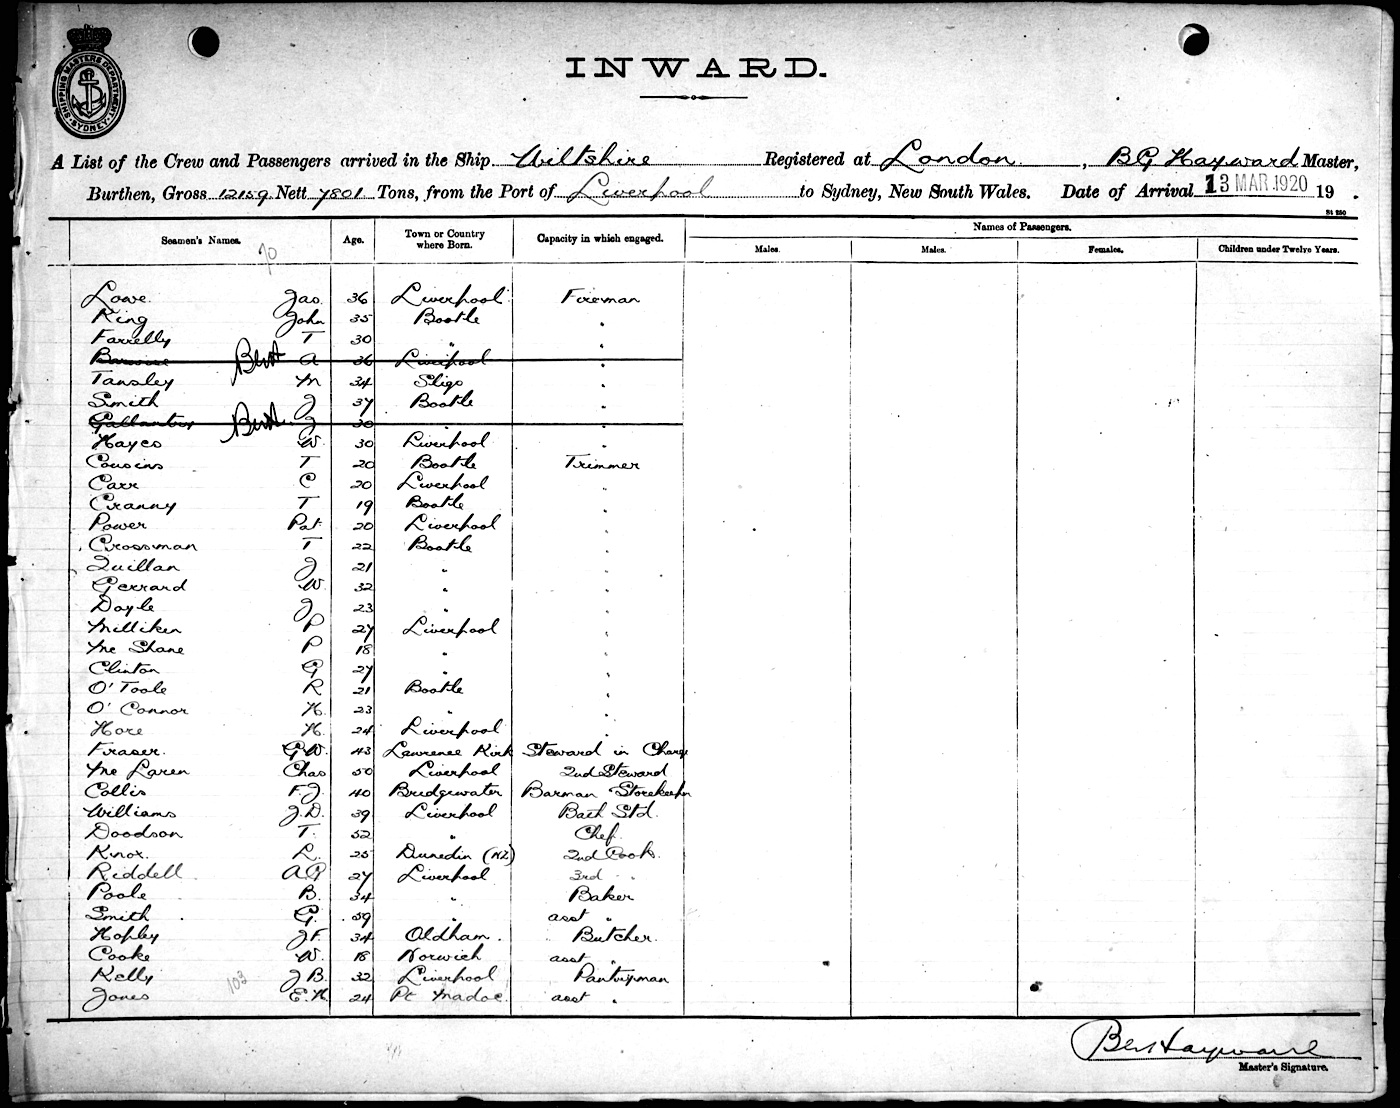 SHIPPING MASTERS DEPARTMENT SYDNEY
INWARD.
A List of the Crew and Passengers arrived in the Ship Wiltshire Registered at London, BG Hayward Master,
Burthen, Gross 12159 Nett 7801 Tons, from the Port of Liverpool to Sydney, New South Wales. Date of Arrival 13 MAR 1920 19 .
St 250
Seamen's Names. Age. Town or Country where Born. Capacity in which engaged. Names of Passengers.
Males. Males. Females. Children under Twelve Years.
70
Lowe Jas. 36 Liverpool Fireman
King John 35 Bootle "
Farrelly T 30 " "
A 36 Liverpool "
Tansley M 34 Sligo "
Smith J 37 Bootle "
J 30 " "
Hayes W. 30 Liverpool "
Cousins T 20 Bootle Trimmer
Carr C 20 Liverpool "
Cranny T 19 Bootle "
Power Pat 20 Liverpool "
Crossman T 22 Bootle "
Quillan J 21 " "
Gerrard W. 32 " "
Doyle J 23 " "
Milliken P 27 Liverpool "
Mc Shane P 18 " "
Clinton G 27 " "
O'Toole R 21 Bootle "
O'Connor H. 23 " "
Hore H. 24 Liverpool "
Fraser. G.W. 43 Lawrence Kirk Steward in Charge
Mc Laren Chas 50 Liverpool 2nd Steward
Collis F.J. 40 Bridgewater Barman Storekeeper
Williams J.D. 39 Liverpool Bath Std.
Doodson T. 52 " Chef.
Knox. L. 25 Dunedin (NZ) 2nd Cook.
Riddell A.G 27 Liverpool 3rd "
Poole B. 34 " Baker
Smith G. 59 " asst "
Hopley J.F. 34 Oldham. Butcher.
Cooke W. 18 Norwich asst "
Kelly J B. 32 Liverpool Pantryman
Jones E.H. 24 Pt Madoc asst "
103
BG Hayward
Master's Signature.